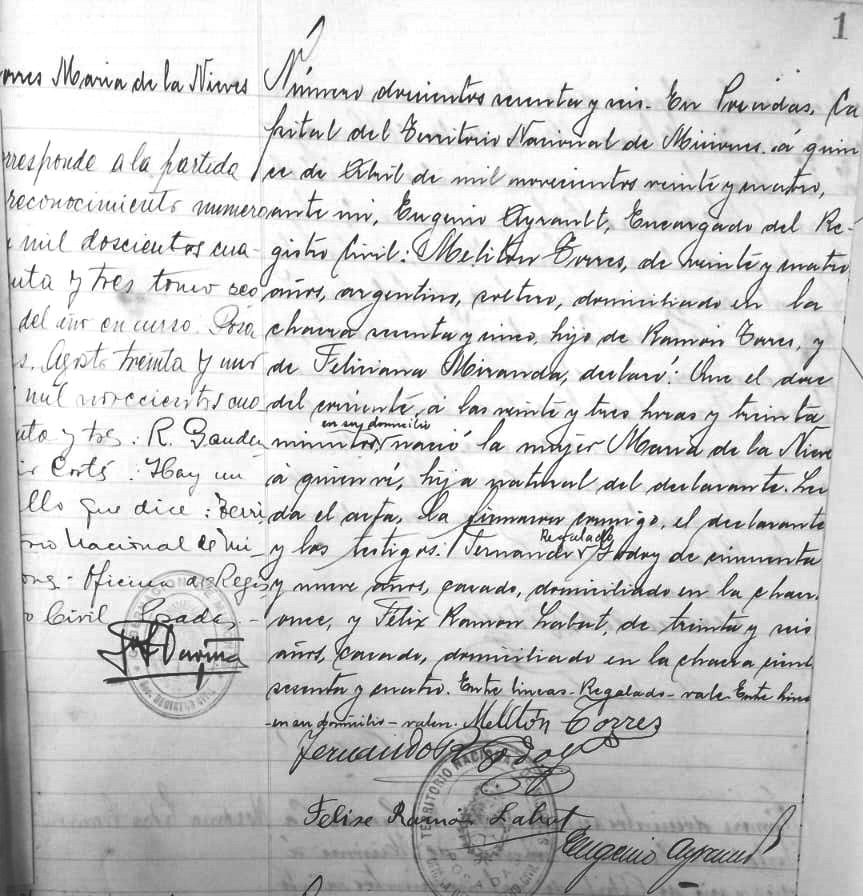 1
Torres Maria de la Nieves
rresponde a la partida
reconocimiento numero
mil doscientos cua-
nta y tres tomo seg
del año en curso. Posa
s. Agosto treinta y uno
mil novecientos cua
nta y tres: R. Gauder
Cortés: Hay un
llo que dice: Terri
rio Nacional de Mi-
ones - Oficina de Regis
o Civil Posadas -
Número doscientos setenta y seis. En Posadas, Ca
pital del Territorio Nacional de Misiones. á quin
ce de Abril de mil novecientos veinte y cuatro,
ante mi, Eugenio Ayrault, Encargado del Re-
gistro Civil: Meliton Torres, de veinte y cuatro
años, argentino, soltero, domiciliado en la
chacra setenta y cinco, hijo de Ramón Torres, y
de Feliciana Miranda, declaró: Que el doce
del corriente, á las veinte y tres horas y treinta
en su domicilio
minutos, nació la mujer Maria de la Nieve
á quien ví, hija natural del declarante. Lei
da el acta, la firmaron conmigo, el declarante
Regalado
y los testigos: Fernando Godoy de cincuenta
y nueve años, casado, domiciliado en la chacr
once, y Félix Ramon Labat, de treinta y seis
años, casado, domiciliado en la chacra cient
sesenta y cuatro. Entre lineas - Regalado - vale. Entre linea
- en su domicilio - valen. Melitón Torres
Fernando R Godoy
Felix Ramón Labat
Eugenio Ayrault
TERRITORIO NACIONAL
POSADAS